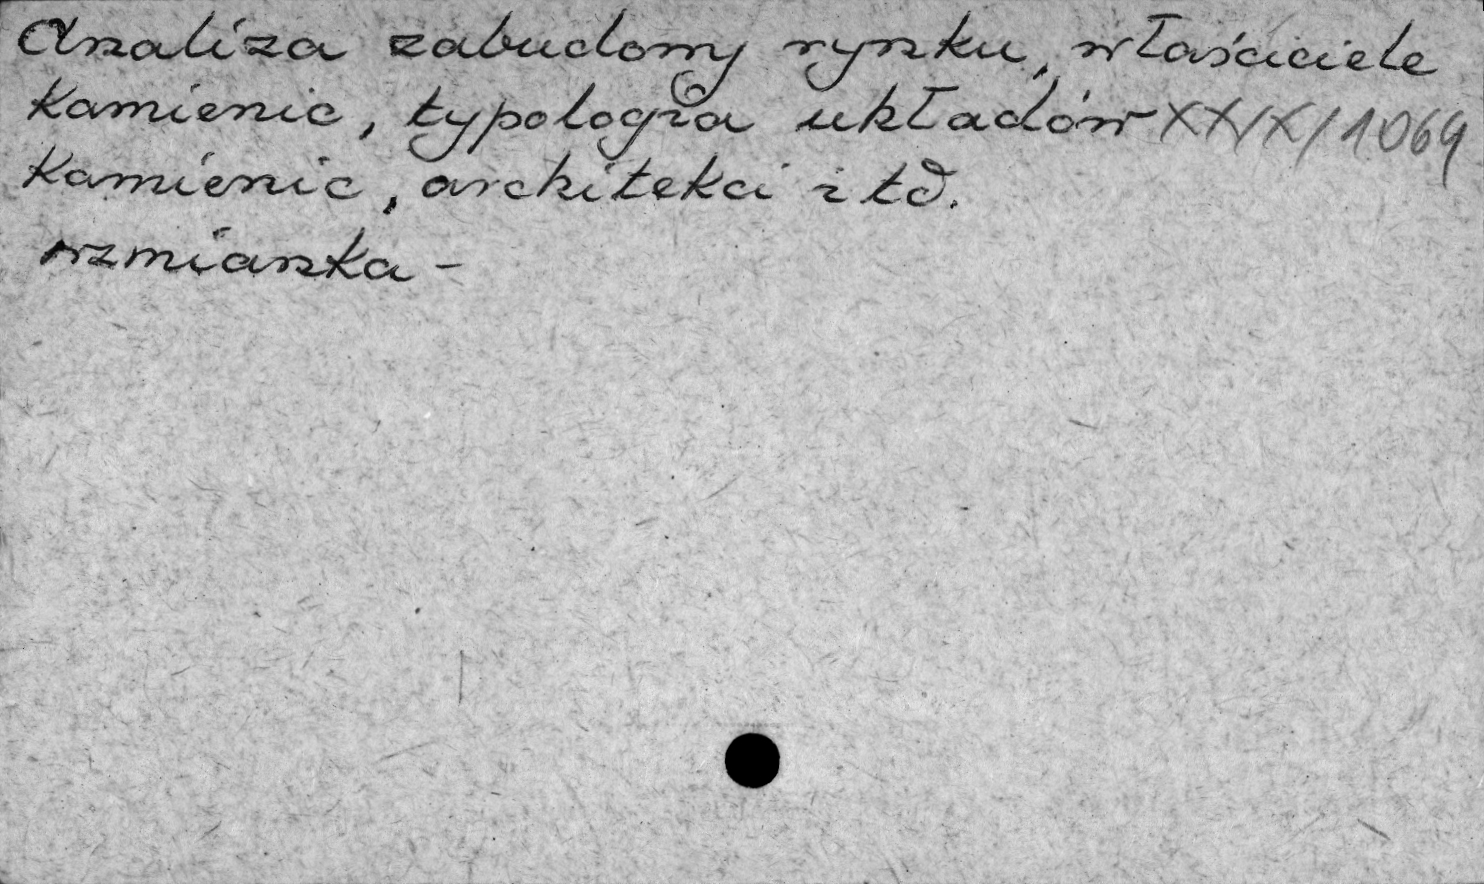 Analiza zabudowy rynku, właściciele
kamienic, typologia układów XXIX/1064
kamienic, architekci i td.
wzmianka -